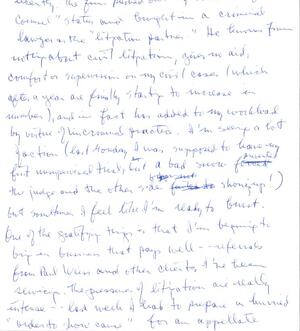 recently, the firm pushed out
Counsel" status and brought in a criminal
lawyer as the "litigation partner." He knows from
nothing about civil litigation, gives no aid,
comfort or supervision on my civil cases (which
after a year are finally starting to increase in
number), and in fact has added to my workload
by virtue of his criminal practice. I'm seeing a lot
of action (last Monday I was supposed to have my
first unsupervised trial, but a bad snow
prevented the judge and the other side from showing up!)
but sometimes I feel like I'm ready to burst.
One of the gratifying things is that I'm beginning to
bring in business that pays well -- referrals
from Paul Weiss and other clients I've been
servicing. The pressures of litigation are really
intense -- last week I had to prepare a hurried
"order to show cause" for an appellate